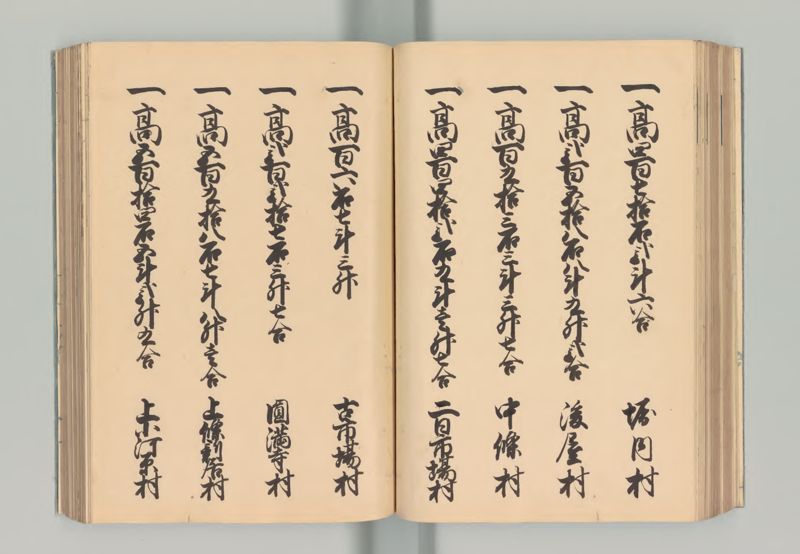 一高四百七拾石弐斗六合 堀内村
一高弐百五拾八石八斗九升弐合 湊屋村
一高百九拾三石三斗三升七合 中條村
一高四百四拾弐石九斗壱升七合 二日市場村
一高百六石七斗三升 古市場村
一高弐百弐拾七石三斗三升七合 圓満寺村
一高五百九拾八石七斗八升壱合 上條新居村
一高五百拾四石五斗弐升五合 上小河原村